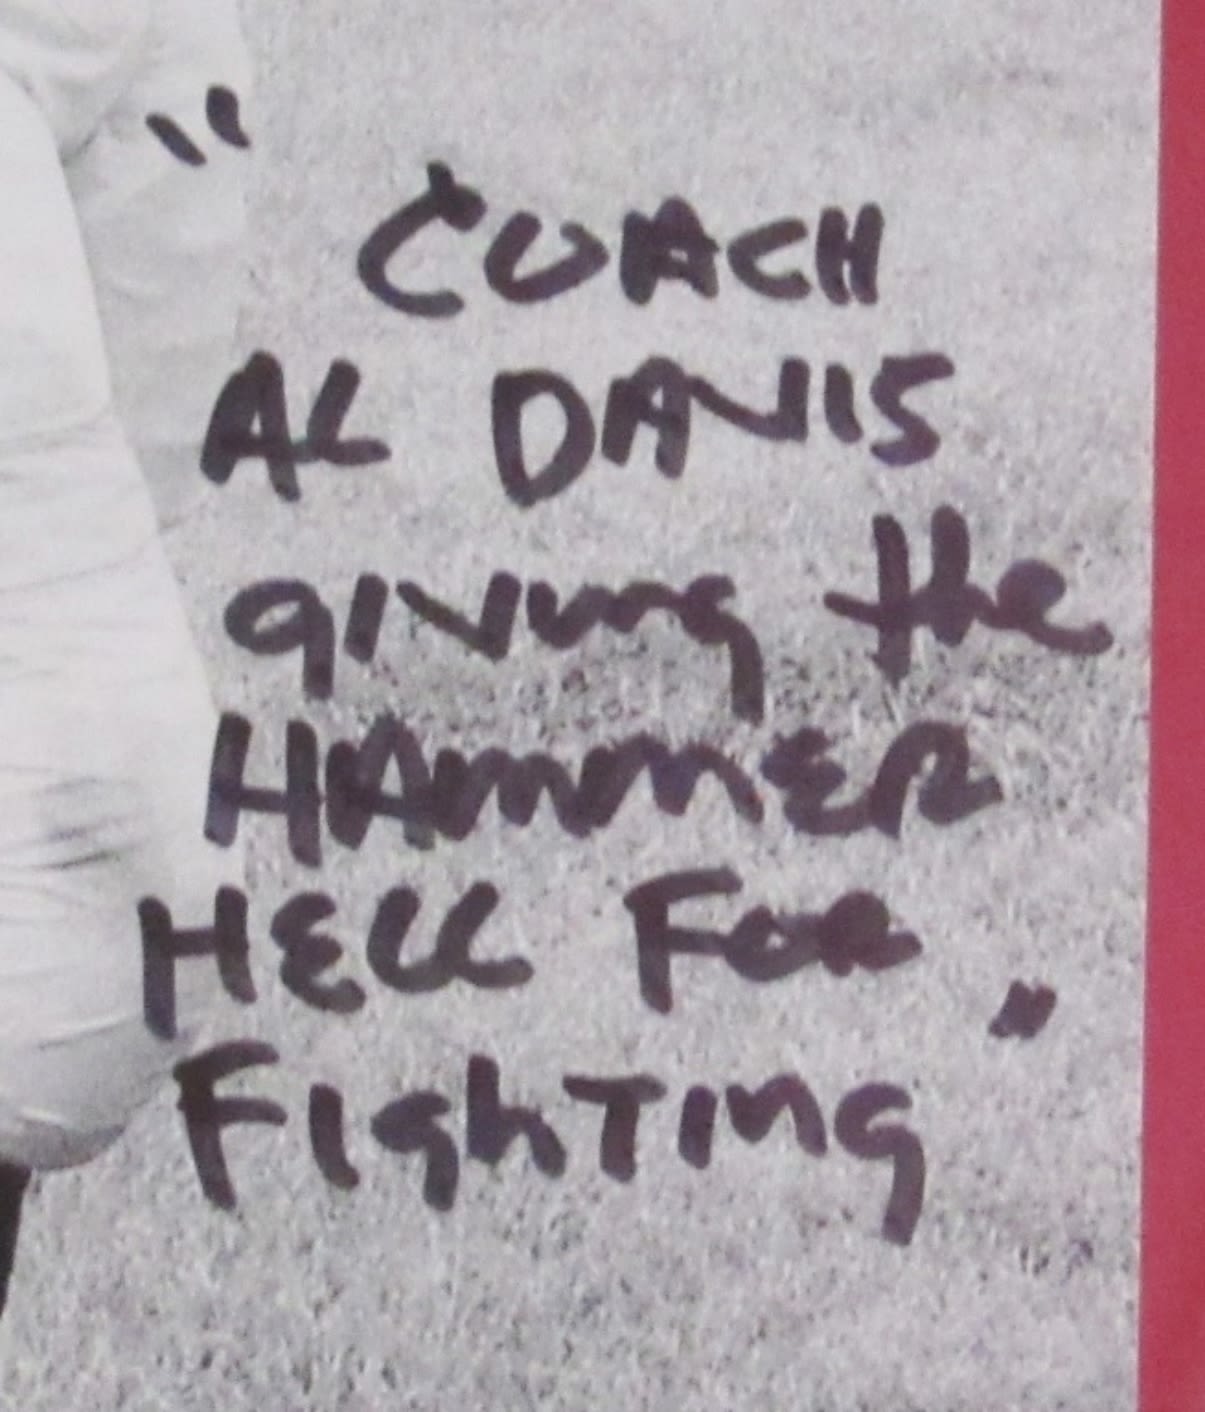 "COACH
AL DAVIS
giving the
HAmmER
HELL FOR
FIghTing"